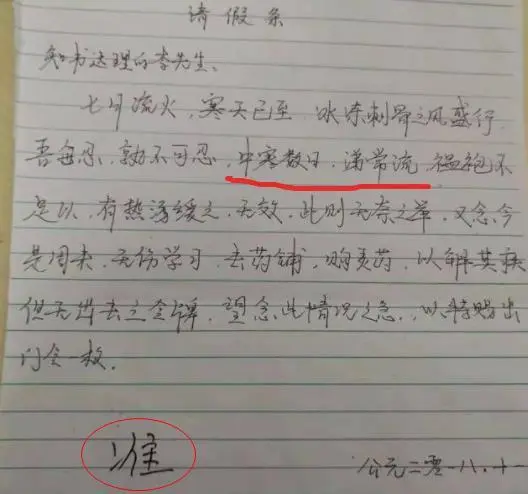 请假条
知书达理的李先生、
七月流火，寒天已至 冰冻刺骨之风盛行
吾每忍，孰不可忍，中寒数日，涕常流，缊袍不
是以，有热汤缓之，无效，此则无奈之举，又念今
是周末，无伤学习，去药铺，购买药，以解其疾
但无出去之全牌，望念此情况之急，以特赐出
门令一枚．
准
公元二零一八.十一